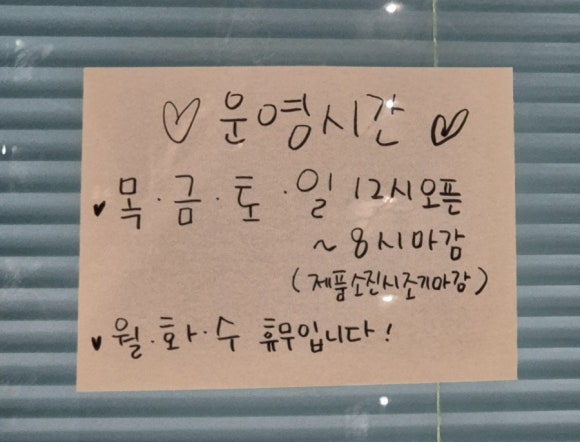 ♡ 운영시간 ♡
♥ 목·금·토·일 12시오픈
~ 8시마감
(제품소진시조기마강)
♥ 월·화·수 휴무입니다!